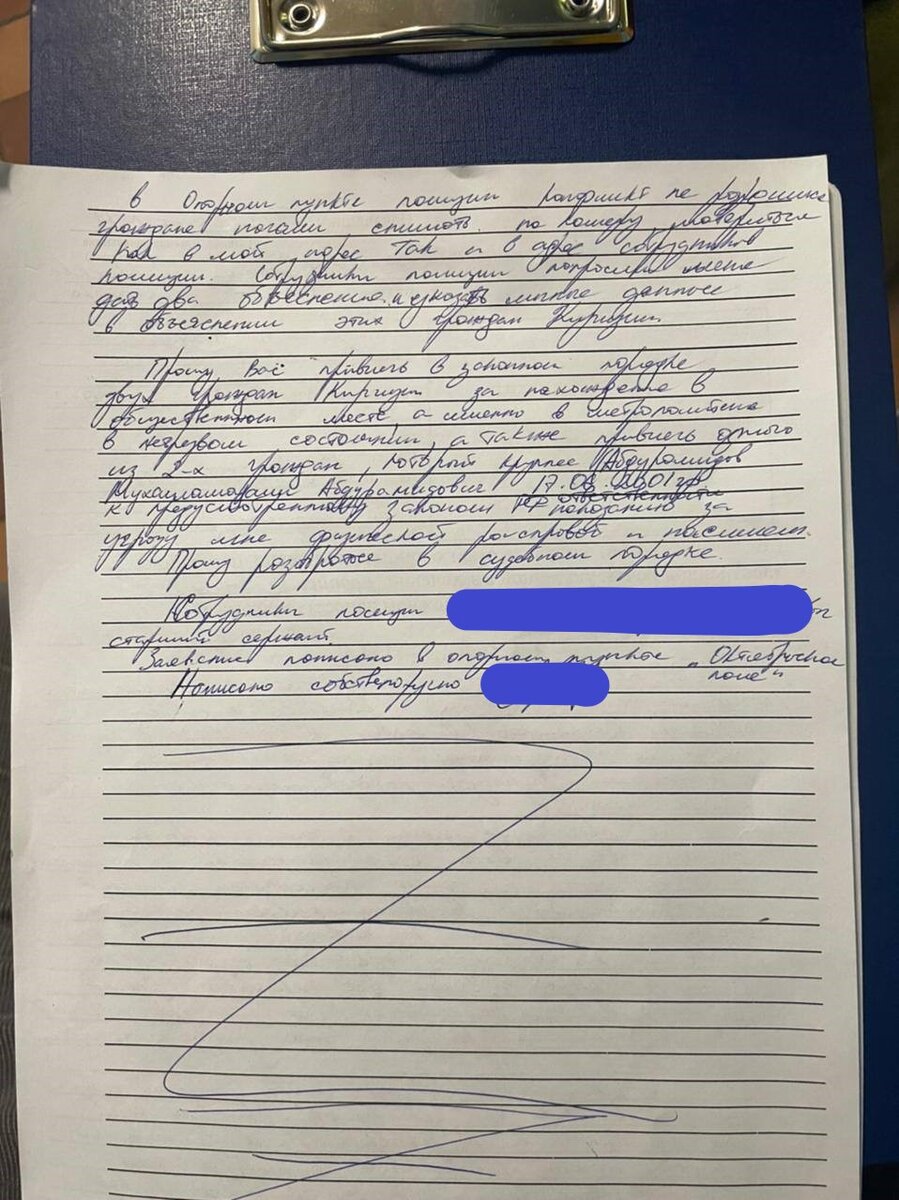 в Опорном пункте полиции конфликт не
граждане начали снимать на камеру материться
как в мой адрес так и в адрес сотрудников
полиции. Сотрудники полиции попросили меня
дать два объяснения и указать личные данные
в объяснении этих граждан Киргизии.
Прошу Вас привлечь в законном порядке
двух граждан Киргизии за нахождение в
общественном месте, а именно в метрополитене
в нетрезвом состоянии, а также привлечь одного
из 2-х граждан, который
Абдурамидович 17.06.2001 г.р
к предусмотренному законом РФ ответственности наказанию за
угрозу мне физической расправой и насилием.
Прошу в судебном порядке.
Сотрудники полиции
старший сержант
Заявление написано в опорном пункте „Октябрьское
поле"
Написано собственноручно